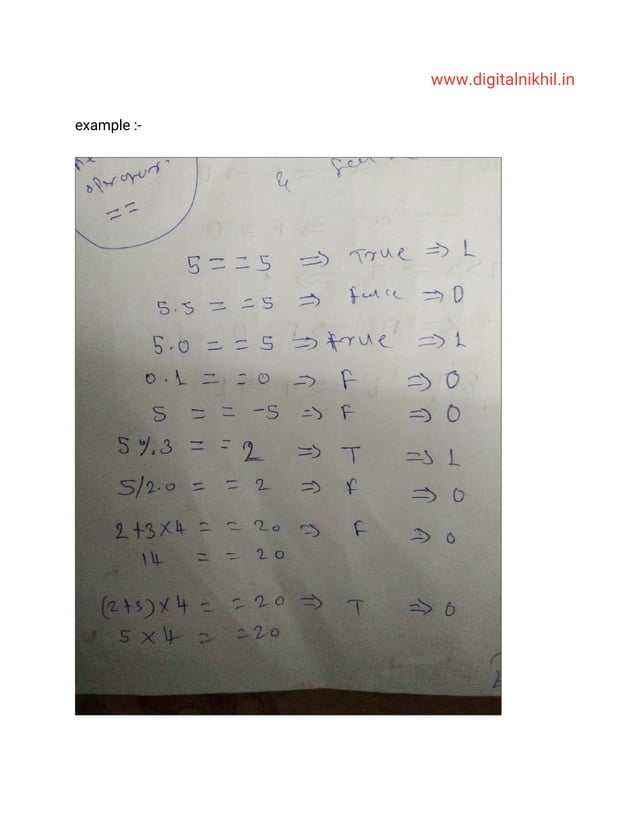 www.digitalnikhil.in
example :-
operator.
==
&
5 == 5 => True => 1
5.5 == 5 => => 0
5.0 == 5 => True => 1
0.1 == 0 => F => 0
5 == -5 => F => 0
5%3 == 2 => T => 1
5/2.0 == 2 => F => 0
2+3×4 == 20 => F => 0
14 == 20
(2+3)×4 == 20 => T => 0
5×4 == 20